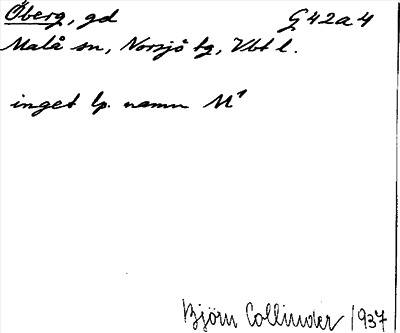 Öberg, gd G 42a4
Malå sn, Norsjö tg, Vbt l.
inget lp. namn M¹
Björn Collinder 1937